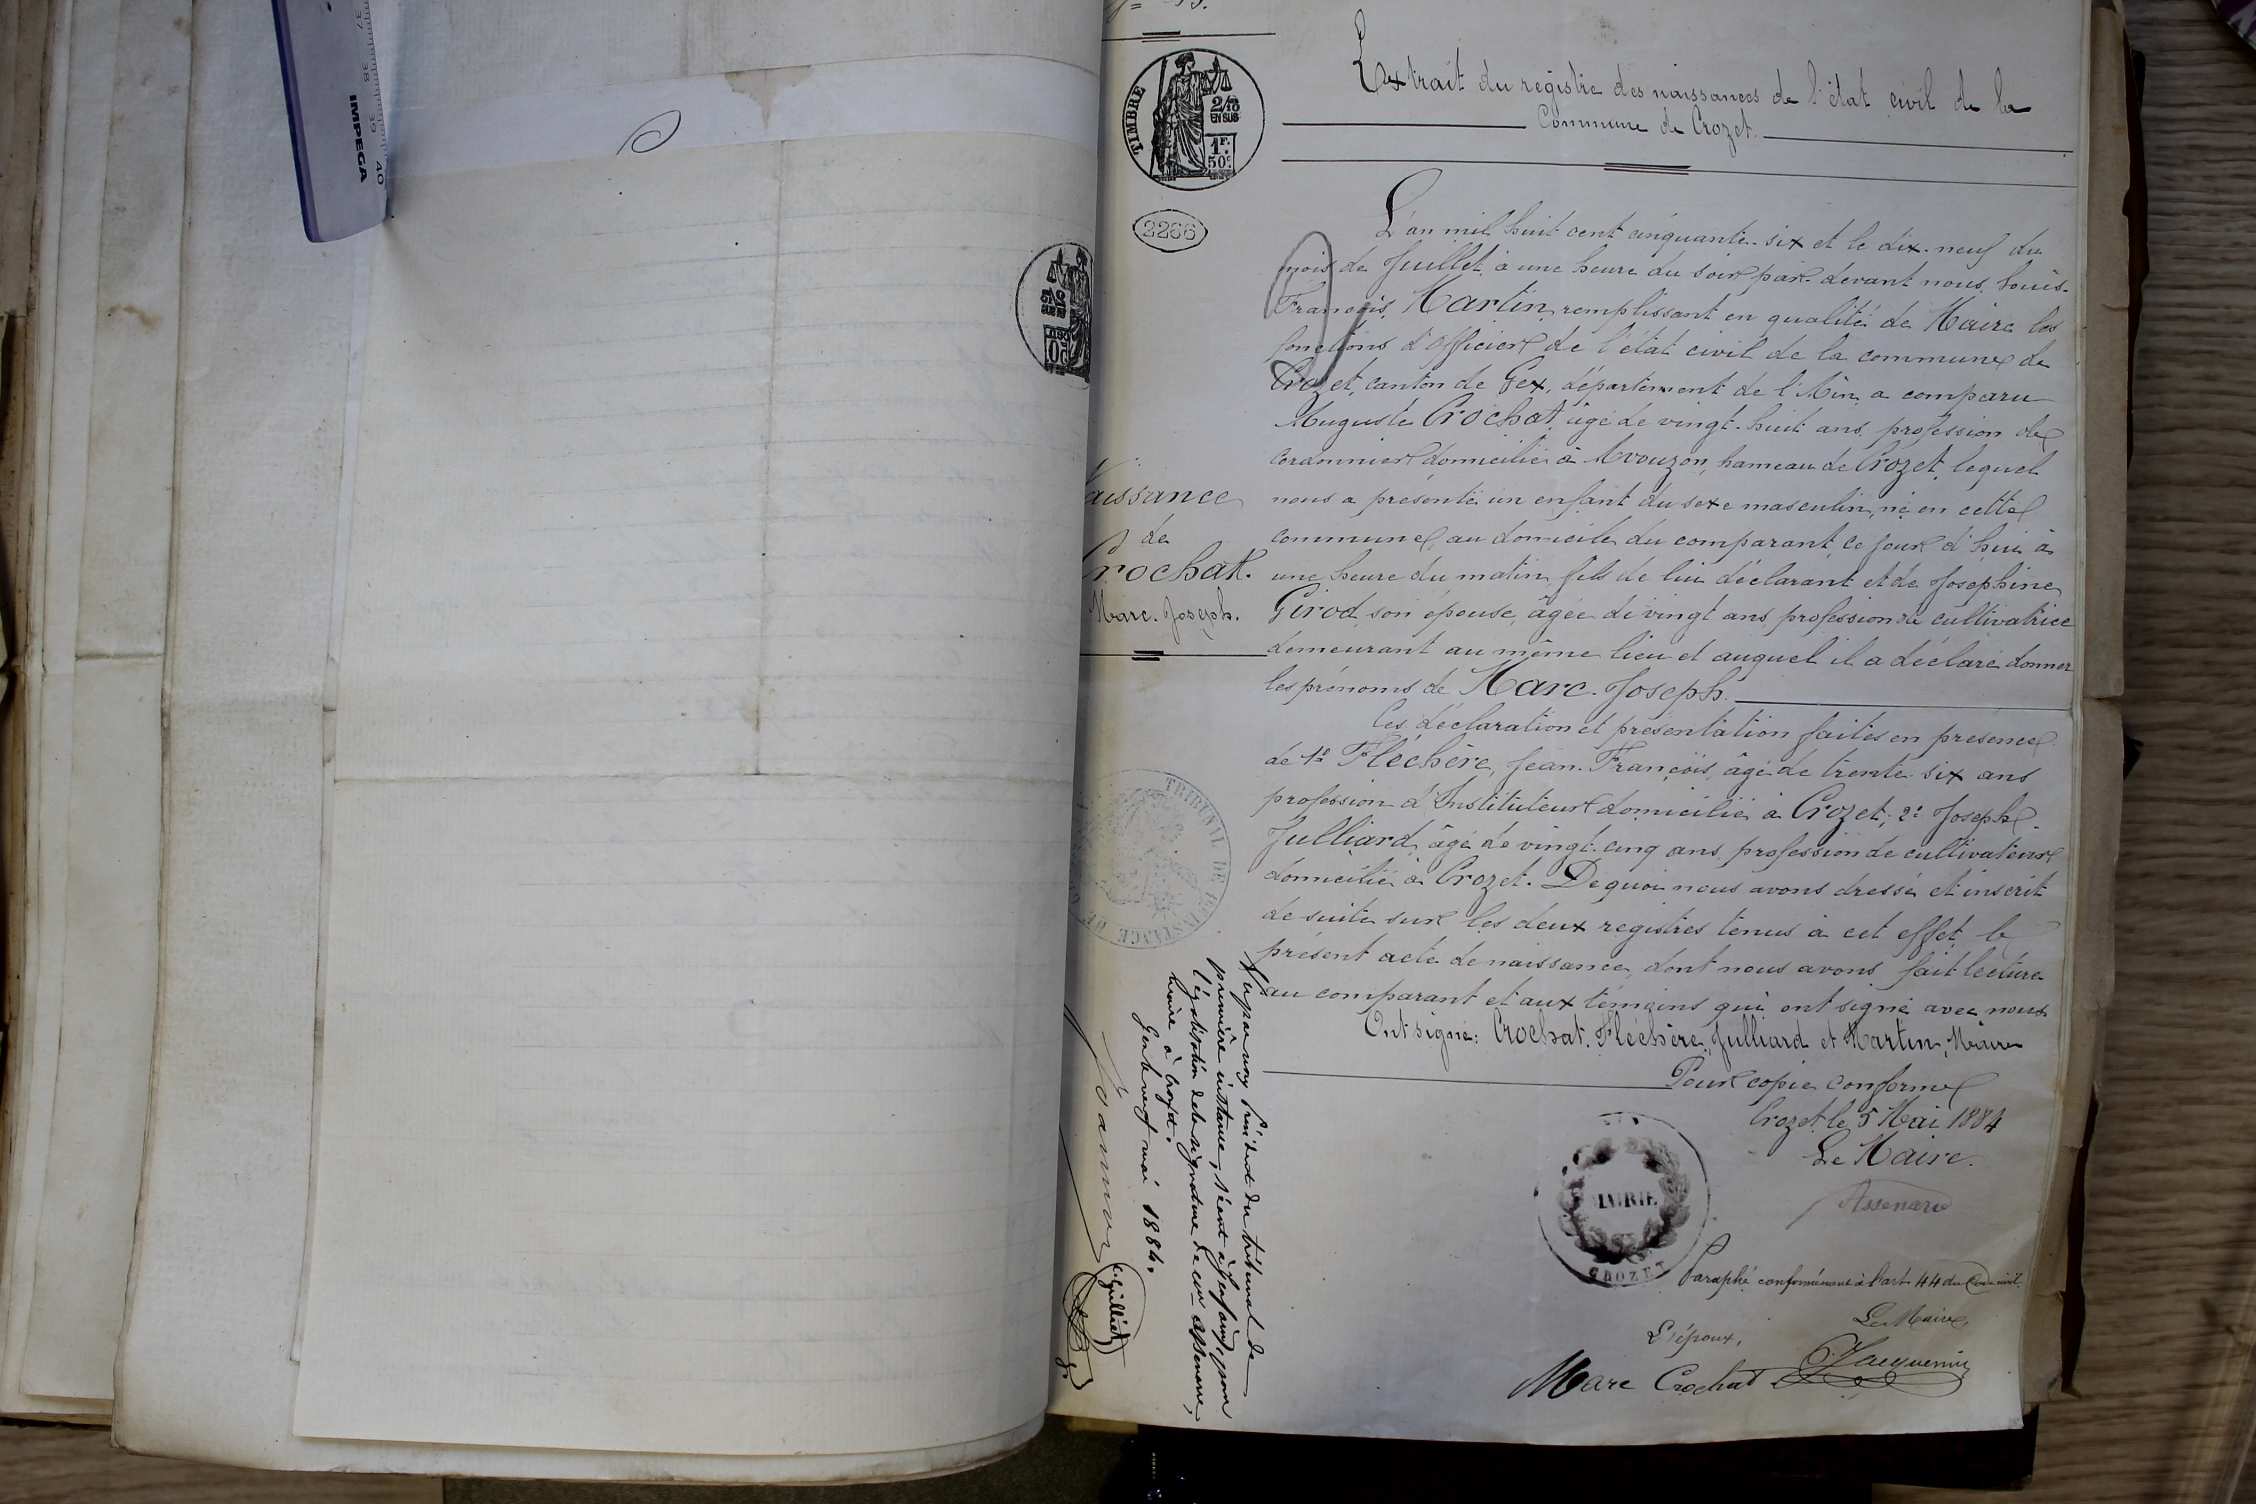 37 38 39 40
IMPEGA
TIMBRE
2/10
EN SUS
1F.
50c.
2266
Extrait du registre des naissances de l'état civil de la
Commune de Crozet.
L'an mil huit cent cinquante-six et le dix-neuf du
mois de Juillet à une heure du soir par devant nous Louis-
François Martin remplissant en qualité de Maire les
fonctions d'officier de l'état civil de la commune de
Crozet, canton de Gex, département de l'Ain a comparu
Auguste Crochat, âgé de vingt-huit ans profession de
cordonnier domicilié à Avouzon, hameau de Crozet, lequel
nous a présenté un enfant du sexe masculin, né en cette
commune, au domicile du comparant, ce jour d'hui à
une heure du matin fils de lui déclarant et de Josephine
Girod son épouse, âgée de vingt ans profession de cultivatrice
demeurant au même lieu et auquel il a déclaré donner
les prénoms de Marc-Joseph.
Naissance
de
Crochat.
Marc-Joseph.
Ces déclaration et présentation faites en présence
de 1º Fléchère, Jean-François, âgé de trente-six ans
profession d'Instituteur domicilié à Crozet; 2º Joseph
Julliard, âgé de vingt-cinq ans profession de cultivateur
domicilié à Crozet. De quoi nous avons dressé et inscrit
de suite sur les deux registres tenus à cet effet le
présent acte de naissance, dont nous avons fait lecture
au comparant et aux témoins qui ont signé avec nous
Ont signé: Crochat, Flechère, Julliard et Martin, Maire
Pour copie conforme
Crozet le 5 Mai 1884
Le Maire.
Assenare
MAIRIE
CROZET
Paraphé conformément à l'art 44 du Code civil.
Le Maire,
L'époux,
Marc Crochat
Jacquemin
TRIBUNAL DE 1ère INSTANCE DE GEX
Vu par nous Président du tribunal de
première instance, séant à Gex (ain), pour
légalisation de la signature de Mr Assenare,
maire à Crozet.
Gex le neuf mai 1884.